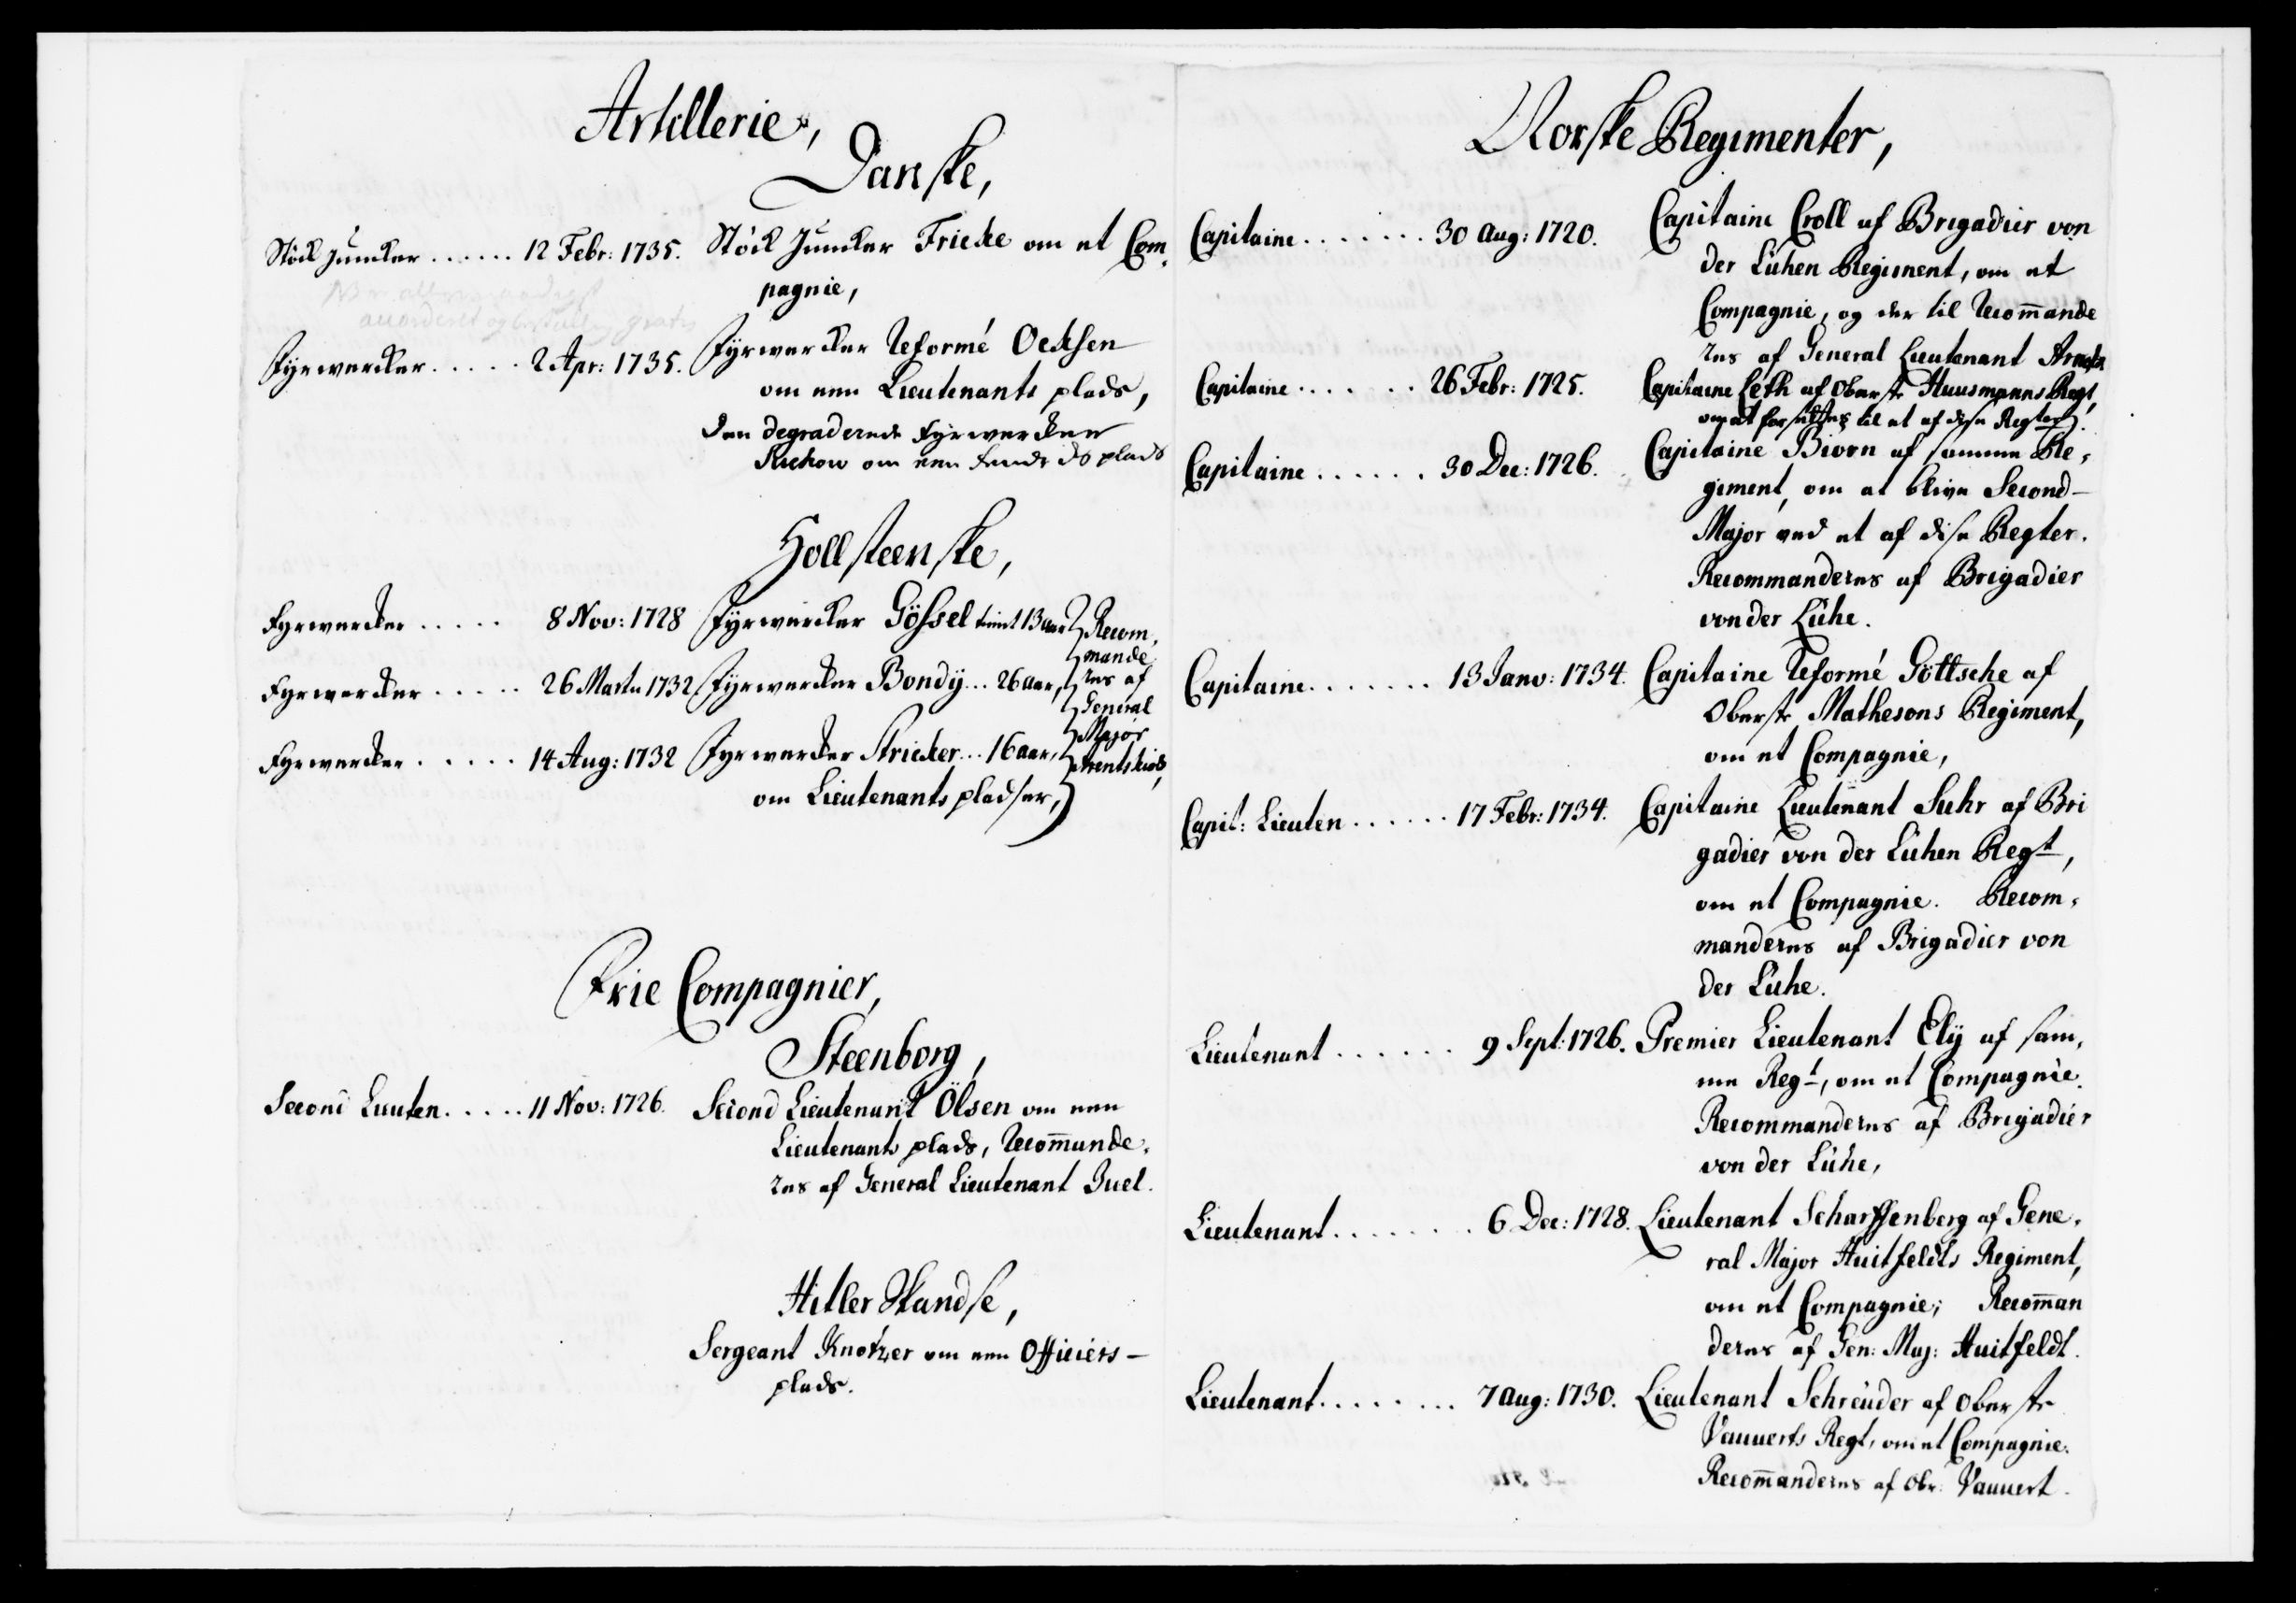 Artillerie,
Danske,
Stöck Juncker ...... 12 Febr: 1735. Stöck Juncker Fricke om et Com-
pagnie,
accorderet og gratis
Fyrwercker ..... 2 Apr: 1735. Fyrwercker Reformé Oecksen
om een Lieutenants plads,
den degraderede Fyrwercker
Kuchow om een plads
Hollsteenske,
Fyrwercker ..... 8 Nov: 1728 Fyrwercker Gössel tient 13 aar Recom-
mande-
Fyrwercker ..... 26 Martii 1732 Fyrwercker Bondÿ... 26 aar, res af
General
Major
Fyrwercker ..... 14 Aug: 1732 Fyrwercker Stricker... 16 aar,
om Lieutenants pladser,
Frie Compagnier,
Steenborg,
Second Lieuten..... 11 Nov: 1726. Second Lieutenant Ölsen om een
Lieutenants plads, Recom̅ande-
res af General Lieutenant Juel.
Hitler Skandse,
Sergeant Knotzer om een Officiers-
plads.
Norske Regimenter,
Capitaine ....... 30 Aug: 1720. Capitaine Croll af Brigadier von
der Lühen Regiment, om et
Compagnie, og der til Recom̅ande
res af General Lieutenant Arnoldt
Capitaine ...... 26 Febr: 1725. Capitaine Leth af Oberste Huusmanns Regt,
om at forsættes til et af disse Regter.
Capitaine ...... 30 Dec: 1726. Capitaine Biorn af samme Re-
giment, om at blive Second-
Major ved et af disse Regter.
Recommanderes af Brigadier
von der Lühe.
Capitaine ....... 13 Janv: 1734. Capitaine Reformé Göttsche af
Oberste Mathesons Regiment,
om et Compagnie,
Capit: Lieuten ...... 17 Febr: 1734. Capitaine Lieutenant Suhr af Bri
gadier von der Lühen Regt,
om et Compagnie. Recom-
manderes af Brigadier von
der Lühe.
Lieutenant ...... 9 Sept: 1726. Premier Lieutenant Elÿ af sam-
me Regt, om et Compagnie.
Recommanderes af Brigadier
von der Lühe,
Lieutenant ....... 6 Dec: 1728. Lieutenant Scharffenberg af Gene-
ral Major Huitfeldts Regiment,
om et Compagnie; Recom̅an
deres af Gen: Maj: Huitfeldt.
Lieutenant ........ 7 Aug: 1730. Lieutenant Schreüder af Oberste
Vauuerts Regt, om et Compagnie.
Recom̅anderes af Obr: Vauuert.